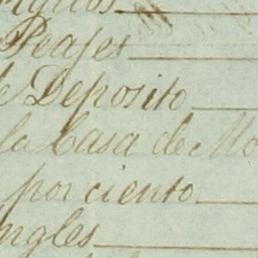 Peajes
Deposito
la Casa de Mo
por ciento
ngles